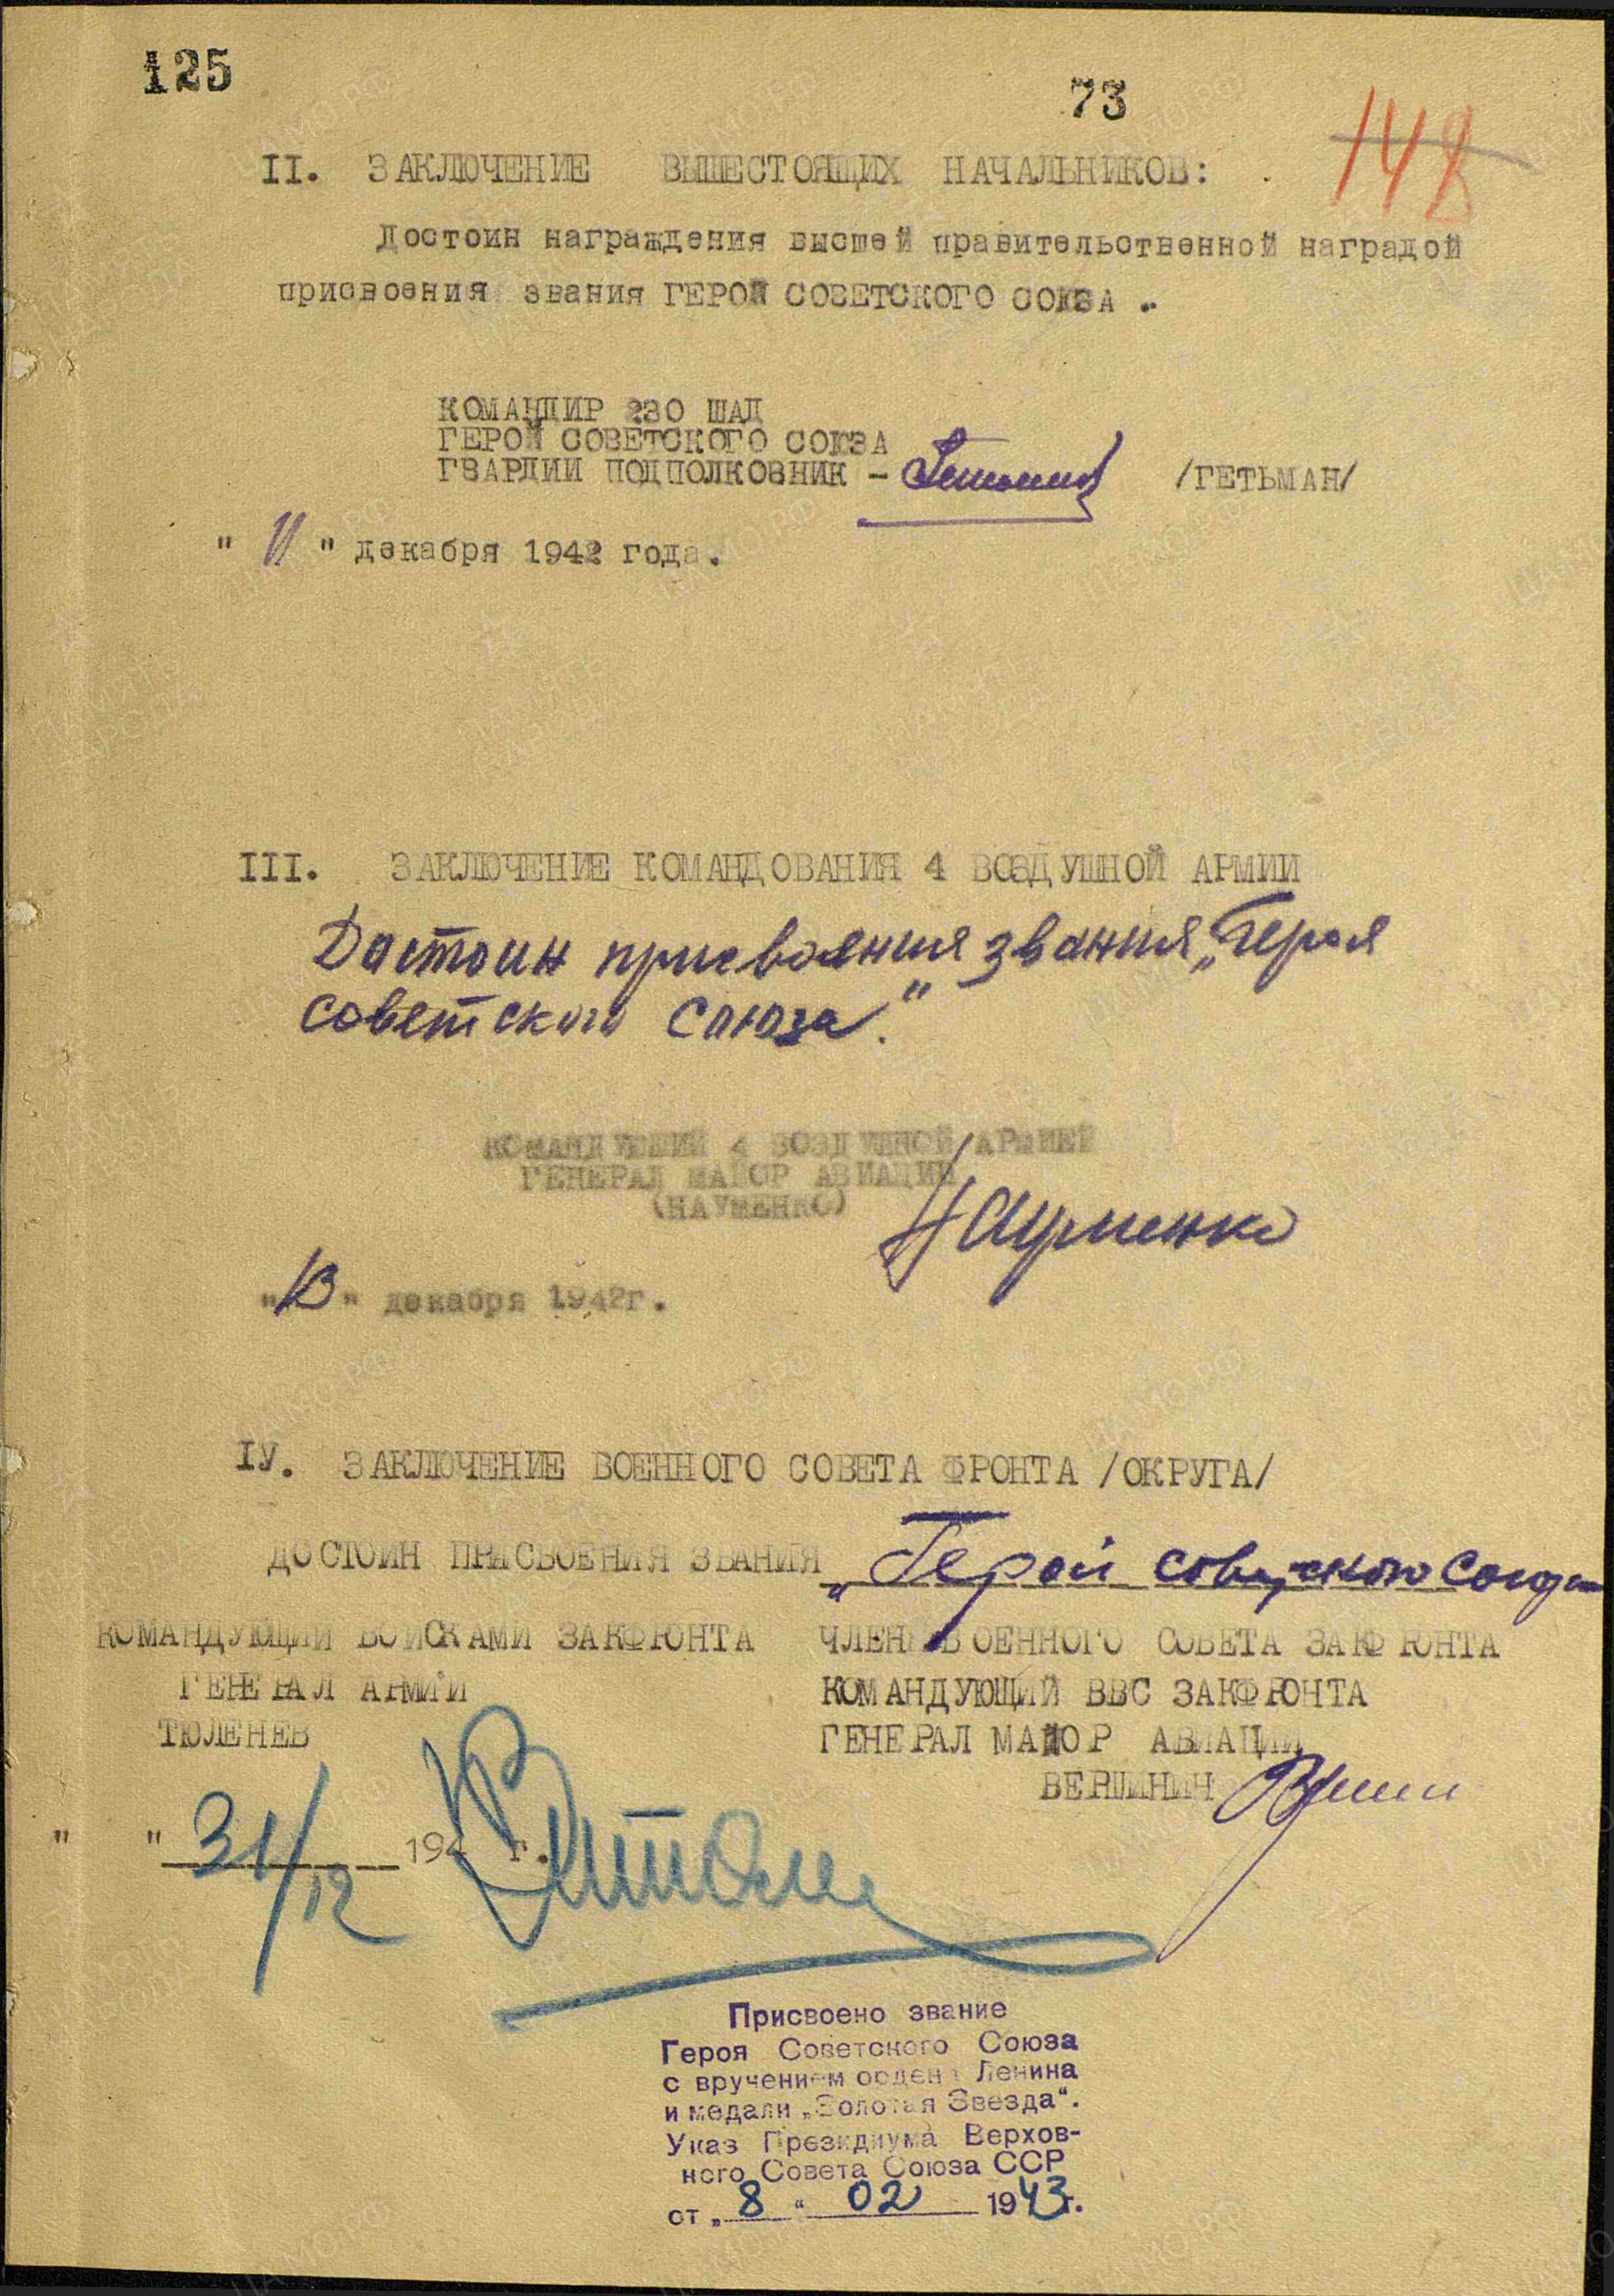 125
73
148
II. ЗАКЛЮЧЕНИЕ ВЫШЕСТОЯЩИХ НАЧАЛЬНИКОВ:
Достоин награждения высшей правительственной наградой
присвоения звания ГЕРОЙ СОВЕТСКОГО СОЮЗА.
КОМАНДИР 230 ШАД
ГЕРОЙ СОВЕТСКОГО СОЮЗА
ГВАРДИИ ПОДПОЛКОВНИК - /ГЕТЬМАН/
" 11 " декабря 1942 года.
III. ЗАКЛЮЧЕНИЕ КОМАНДОВАНИЯ 4 ВОЗДУШНОЙ АРМИИ
Достоин присвоения звания „Героя
Советского Союза."
КОМАНДУЮЩИЙ 4 ВОЗДУШНОЙ АРМИЕЙ
ГЕНЕРАЛ МАЙОР АВИАЦИИ
(НАУМЕНКО) Науменко
"13" декабря 1942г.
IУ. ЗАКЛЮЧЕНИЕ ВОЕННОГО СОВЕТА ФРОНТА /ОКРУГА/
ДОСТОИН ПРИСВОЕНИЯ ЗВАНИЯ „Герой Советского Союза
КОМАНДУЮЩИЙ ВОЙСКАМИ ЗАКФРОНТА ЧЛЕН ВОЕННОГО СОВЕТА ЗАКФРОНТА
ГЕНЕРАЛ АРМИИ КОМАНДУЮЩИЙ ВВС ЗАКФРОНТА
ТЮЛЕНЕВ ГЕНЕРАЛ МАЙОР АВИАЦИИ
ВЕРШИНИН
" " 31/12 194 г.
Присвоено звание
Героя Советского Союза
с вручением ордена Ленина
и медали „Золотая Звезда“.
Указ Президиума Верхов-
ного Совета Союза ССР
от „ 8 “ 02 1943г.